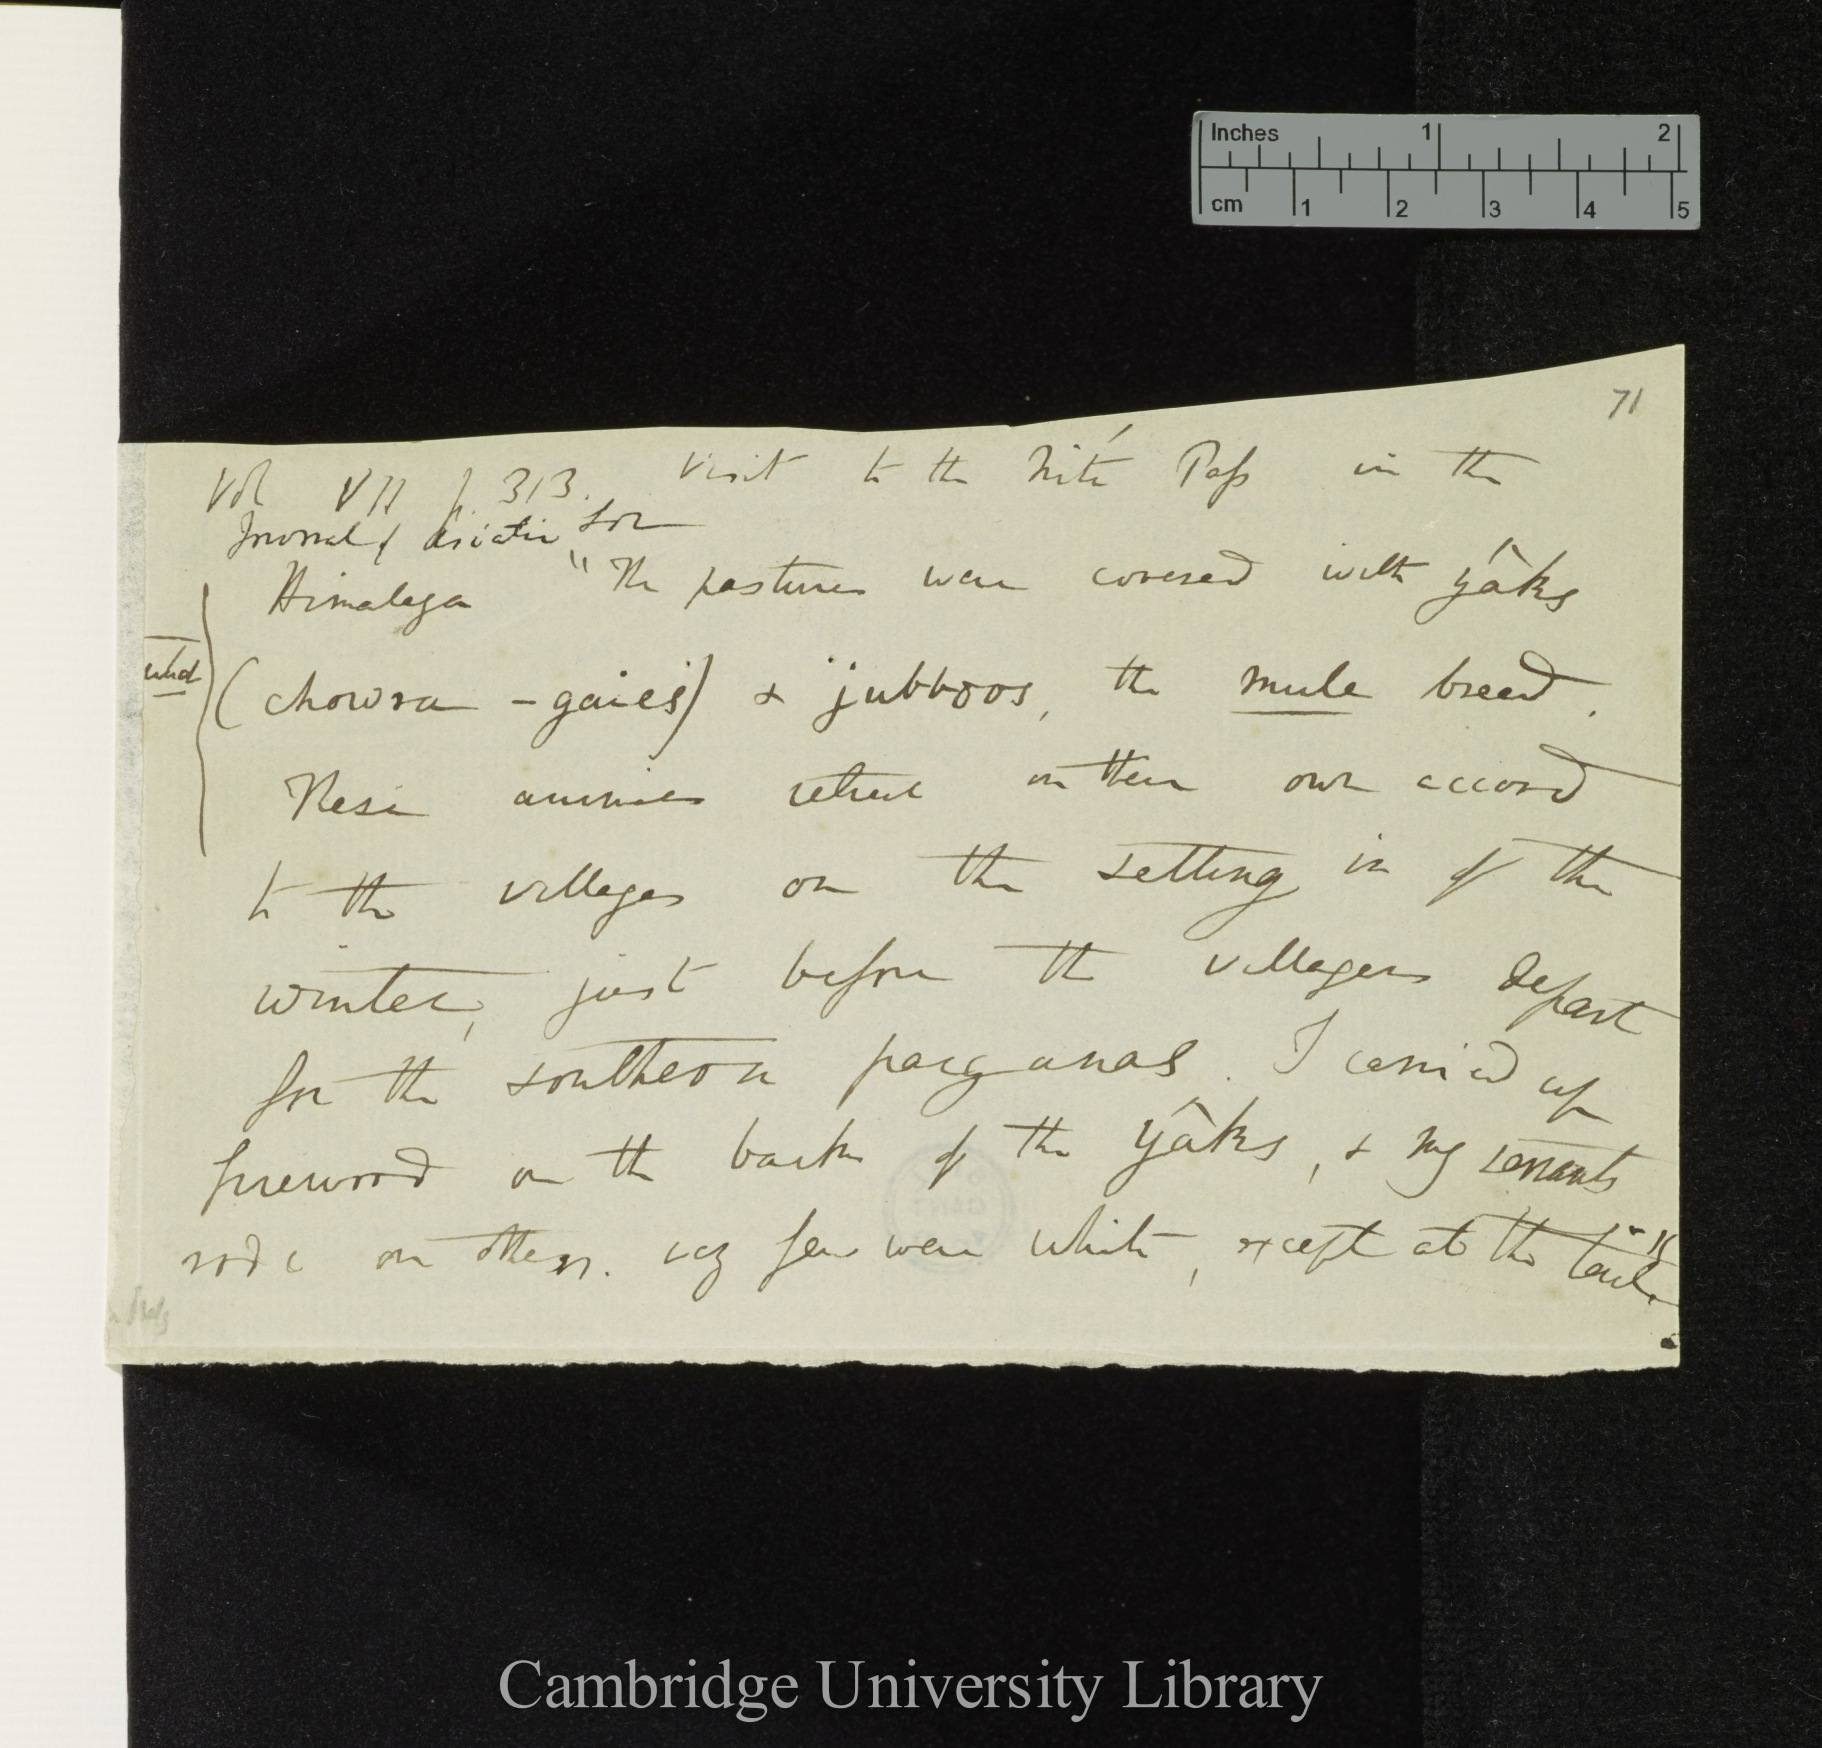 Inches 1 2
cm 1 2 3 4 5
71
Vol VII p 313. Visit to the Niti Pass in the
Journal of Asiatic Soc
Himalaya "The pastures were covered with yâks
(chowra-gaies) & jubboos, the mule breed.
These animals retreat on their own accord
to the villages on the setting in of the
winter, just before the villagers depart
for the southern parganas. I carried up
firewood on the backs of the yâks, & my servants
rode on others. very few were white, except at the tail."
Cambridge University Library